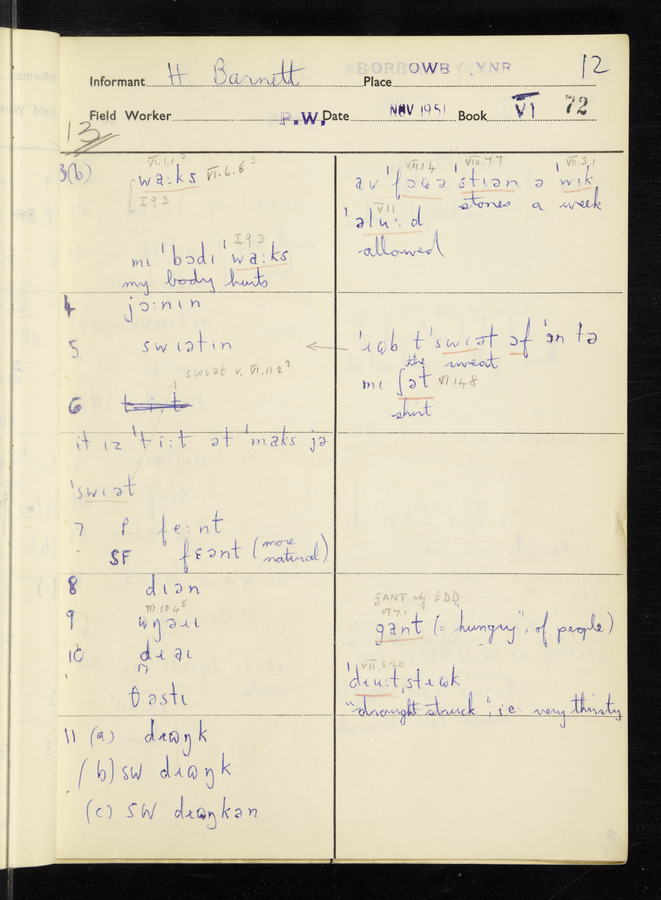 Informant H Barnett Place BORROWBY YNR 12
Field Worker P.W. Date NOV 1951 Book VI 72
13
3(b) wa:ks VI.6.6³
VI.1.1³
I 9 3
I 9 3
mɪ ˈbɔdɪ ˈwa:ks
my body hurts
4 jɔ:nɪn
5 swɪətɪn
swɪət v. VI.11.2³
6
it ɪz ˈti:t ət ˈmaks jə
ˈswɪət
7 P. fe:nt
SF fɛənt (more natural)
8 dɪən
9
10
θɒstɪ
11 (a) dɹʊŋk
(b) SW dɹʊŋk
(c) SW dɹʊŋkən
VII.1.4 VII.7.7 VII.3.1
av ˈfəʊə ˈstɪən ə ˈwik
stones a week
VII
ˈəlu:d
allowed
ˈɹʊb tˈswɪət əf ˈɒn tə
the sweat
mɪ ʃət VI.14.8
shirt
GANT adj EDD
VI 7.1
gant (= hungry", of people)
VII.6.20
ˈdɹu:tˌstɹʊk
"drought struck", i.e. very thirsty